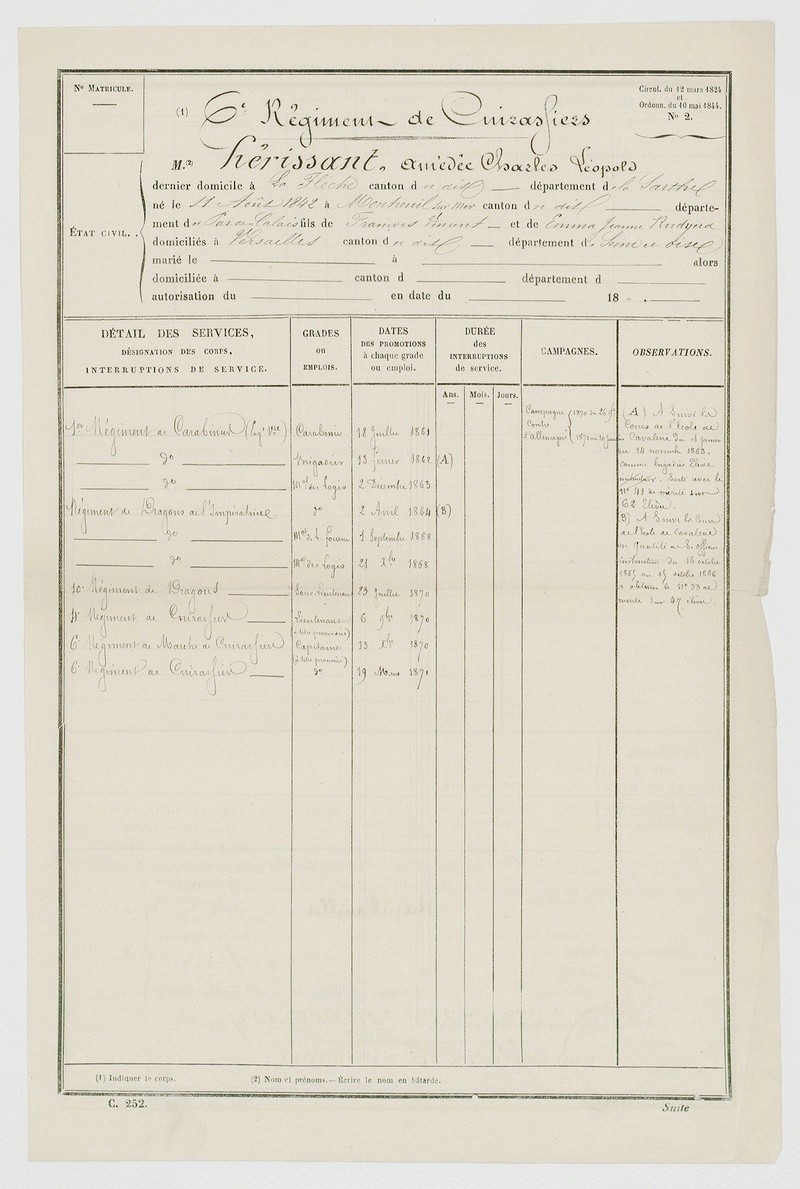 No MATRICULE.
Circul. du 12 mars 1824
et
Ordonn. du 10 mai 1844.
No 2.
(1) 6e Régiment de Cuirassiers
M.(2) Hérissant, Amédée Charles Léopold
ÉTAT CIVIL.
dernier domicile à La Flèche canton d u dit département d e la Sarthe
né le 11 Août 1842 à Montreuil sur Mer canton d u dit départe-
ment d u Pas de Calais fils de François Vincent et de Emma Jeanne Rudyerd
domiciliés à Versailles canton d u dit département d e Seine et Oise
marié le à alors
domiciliée à canton d département d
autorisation du en date du 18
DÉTAIL DES SERVICES,
DÉSIGNATION DES CORPS,
INTERRUPTIONS DE SERVICE.
GRADES
OU
EMPLOIS.
DATES
DES PROMOTIONS
à chaque grade
ou emploi.
DURÉE
des
INTERRUPTIONS
de service.
Ans. Mois. Jours.
CAMPAGNES.
OBSERVATIONS.
1er Régiment de Carabiniers Carabinier 18 Juillet 1861
do Brigadier 13 février 1862 (A)
do Mal des Logis 2 Décembre 1863
Régiment de Dragons de l'Impératrice do 2 Avril 1864 (B)
do Mal d. L. fourrier 1 Septembre 1868
do Mal des Logis 21 Xbre 1868
10e Régiment de Dragons Sous-Lieutenant 23 Juillet 1870
4e Régiment de Cuirassiers Lieutenant 6 9bre 1870
(à titre provisoire)
6e Régiment de Marche de Cuirassiers Capitaine 13 Xbre 1870
(à titre provisoire)
6e Régiment de Cuirassiers do 19 Mars 1871
Campagne
Contre
l'allemagne
1870 du 26
1871 au
(A) A suivi les
Cours de l'École de
Cavalerie du 1 Janvier
au 14 novemb. 1863,
comme brigadier Elève
instructeur. Sorti avec le
No 41 de mérite sur
62 Elèves.
(B) A suivi les Cours
de l'École de Cavalerie
en qualité de S. officier
instructeur du 16 octobre
1865 au 15 octobre 1866
a obtenu le No 33 de
mérite sur 47 élèves.
(1) Indiquer le corps.
(2) Nom et prénoms. — Écrire le nom en bâtarde.
C. 252.
Suite